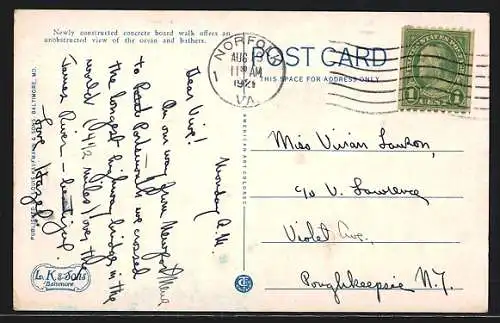 Newly constructed concrete board walk offers an
unobstructed view of the ocean and bathers.
POST CARD
THIS SPACE FOR ADDRESS ONLY
NORFOLK
AUG
11 AM
VA.
1
UNITED STATES POSTAGE
1 CENT 1
Monday A.M.
Dear Vive!
On our way from Newport News
to we crossed
the longest highway bridge in the
world (4 1/2 miles) over the
James River - beautiful.
Love Hazel.
Miss Vivian Lawson,
c/o V. Lawrence
Violet Ave.,
Poughkeepsie N.Y.
AMERICAN ART COLORED
PUBLISHED BY LOUIS KAUFMANN & SONS, BALTIMORE, MD.
L. K. & Sons
Baltimore